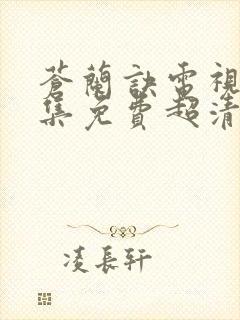 蒼蘭訣電視
集免費超清
凌長軒